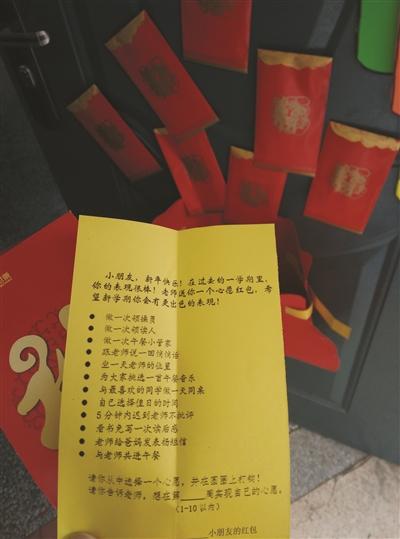 小朋友，新年快乐！在过去的一学期里，
你的表现很棒！老师送你一个心愿红包，希
望新学期你会有更出色的表现！
● 做一次领操员
● 做一次领读人
● 做一次午餐小管家
● 跟老师说一回悄悄话
● 坐一天老师的位置
● 为大家挑选一首午餐音乐
● 与最喜欢的同学做一天同桌
● 自己选择值日的时间
● 5分钟内迟到老师不批评
● 看书免写一次读后感
● 老师给爸妈发表扬短信
● 与老师共进午餐
请你从中选择一个心愿，并在圆圈上打钩！
请你告诉老师，想在第____周实现自己的心愿。
（1-10以内）
____小朋友的红包